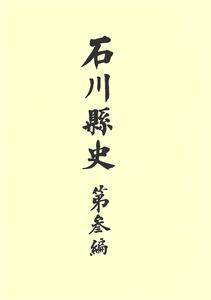 石川縣史
第叁編